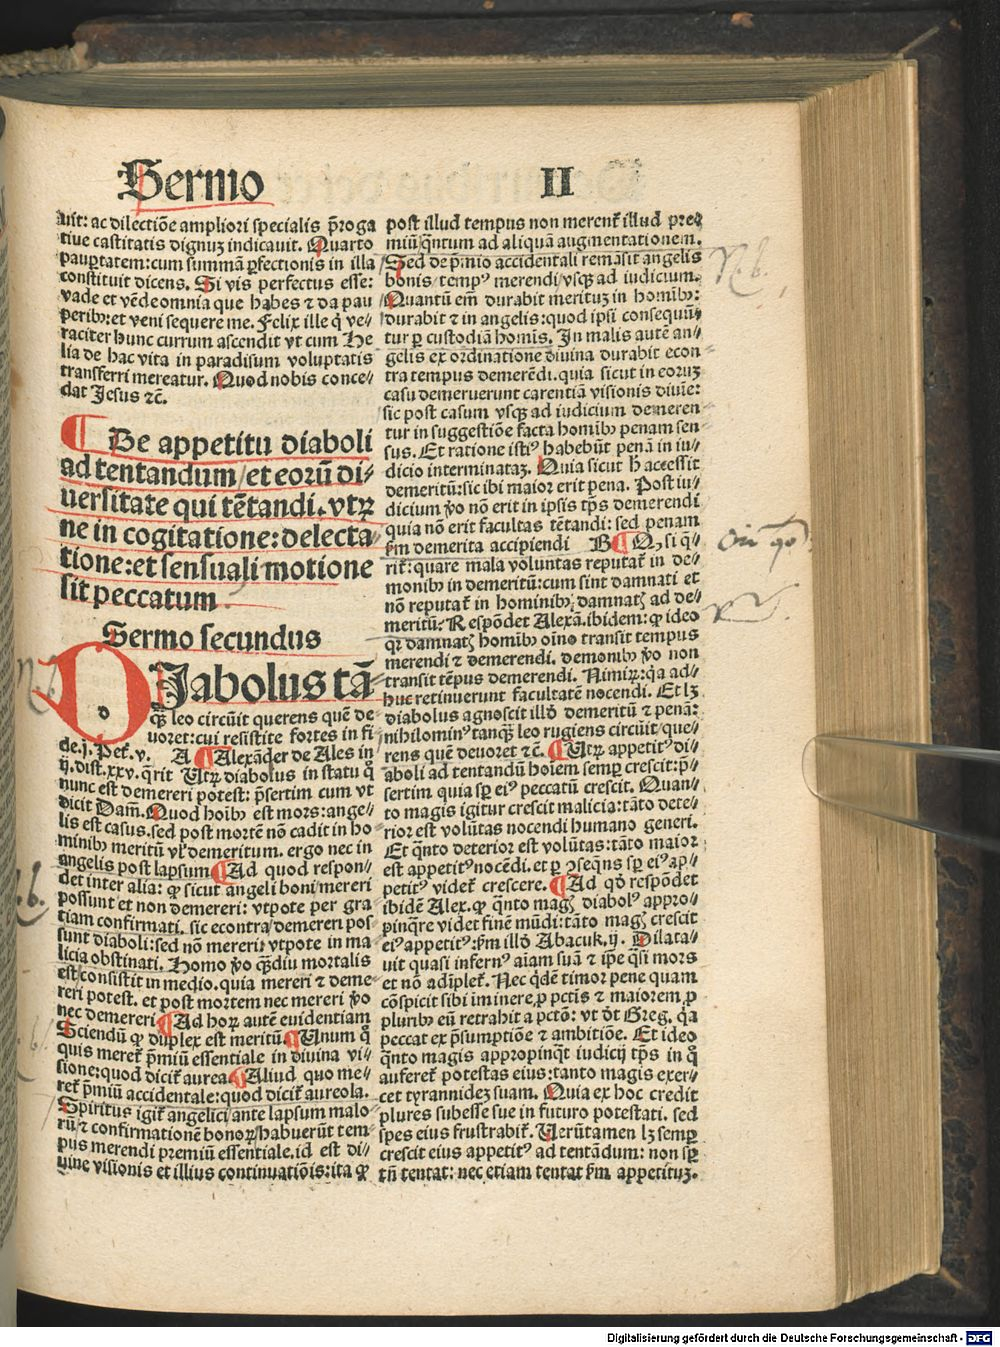 Sermo II
uit: ac dilectiōe ampliori specialis p̄roga
tiue castitatis dignuʒ indicauit. Quarto
paup̱tatem: cum summā ꝑfectionis in illa
constituit dicens. Si vis perfectus esse:
vade et vēde omnia que habes ⁊ da pau
peribꝰ: et veni sequere me. Felix ille q̇ ve⸗
raciter hunc currum ascendit vt cum He
lia de hac vita in paradisum voluptatis
transferri mereatur. Quod nobis conce⸗
dat Jesus ⁊c̄.
¶ De appetitu diaboli
ad tentandum/et eorū di⸗
uersitate qui tētandi. vtrꝫ
ne in cogitatione: delecta⸗
tione: et sensuali motione
sit peccatum.
Sermo secundus
DJabolus tā⸗
q̄ꝫ leo circūit querens quē de
uoret: cui resistite fortes in fi
de. j. Pet̄. v. A ¶ Alexāder de Ales in
ij. dist. xxv. q̄rit Utꝝ diabolus in statu q̊
nunc est demereri potest: p̄sertim cum vt
dicit Dam̄. Quod hoībꝰ est mors: ange⸗
lis est casus. sed post mortē nō cadit in ho
minibꝰ meritū vl̓ demeritum. ergo nec in
angelis post lapsum ¶ Ad quod respon⸗
det inter alia: ꝙ sicut angeli boni mereri
possunt et non demereri: vtpote per gra
tiam confirmati. sic econtra demereri pos
sunt diaboli: sed nō mereri: vtpote in ma
licia obstinati. Homo ꝟo q̄ꝫdiu mortalis
est/consistit in medio. quia mereri ⁊ deme⸗
reri potest. et post mortem nec mereri ꝟo
nec demereri ¶ Ad hoꝝ autē euidentiam
Sciendū ꝙ duplex est meritū. ¶ Unum q̊
quis meret̄ p̄miū essentiale in diuina vi⸗
sione: quod dicit̄ aurea ¶ Aliud quo me⸗
ret̄ p̄miū accidentale: quod dicit̄ aureola.
Spiritus igit̄ angelici/ante lapsum malo
rū ⁊ confirmationē bonoꝝ/habuerūt tem⸗
pus merendi premiū essentiale. id est di⸗
uine visionis et illius continuatiōis: ita ꝙ
post illud tempus non merent̄ illud pre⸗
miū/q̄ntum ad aliquā augmentationem.
Sed de p̄mio accidentali remāsit angelis
bonis/tempꝰ merendi/vsqꝫ ad iudicium.
Quantū em̄ durabit merituʒ in hominibꝰ:
durabit ⁊ in angelis: quod ipsi consequūt⸗
tur ꝑ custodiā homīs. Jn malis autē an⸗
gelis ex ordinatione diuina durabit econ⸗
tra tempus demerēdi. quia sicut in eoruʒ
casu demeruerunt carentiā visionis diuīe:
sic post casum vsqꝫ ad iudicium demeren⸗
tur in suggestiōe facta hominibꝰ penam sen⸗
sus. Et ratione istiꝰ habebūt penā in iu⸗
dicio interminatam. Quia sicut h̄ accessit
demeritū: sic ibi maior erit pena. Post iu⸗
dicium ꝟo nō erit in ipsis tp̄s demerendi
quia nō erit facultas tētandi: sed penam
ẜm demerita accipiendi B ¶ Qꝫ si q̄⸗
rit̄: quare mala voluntas reputat̄ in de⸗
monibꝰ in demeritū: cum sint damnati et
nō reputat̄ in hominibꝰ damnatꝭ ad de⸗
meritū: Respōdet Alexā. ibidem: ꝙ ideo
qꝛ damnatꝭ hominibꝰ oīno transit tempus
merendi ⁊ demerendi. demonibꝰ ꝟo non
transit tēpus demerendi. Nimirꝫ: q̇a ad⸗
huc retinuerunt facultatē nocendi. Et lꝫ
diabolus agnoscit illd̓ demeritū ⁊ penā:
nihilominꝰ tanqꝫ leo rugiens circuit/que⸗
rens quē deuoret ⁊c̄. ¶ Utꝝ appetitꝰ di⸗
aboli ad tentandū hoīem semꝑ crescit: p̄⸗
sertim quia sꝑ eiꝰ peccatū crescit. Quan⸗
to magis igitur crescit malicia: tāto dete⸗
rior est volūtas nocendi humano generi.
Et q̄nto deterior est volūtas: tāto maior
est appetitꝰ nocēdi. et ꝑ ꝯseq̄ns sꝑ eiꝰ ap⸗
petitꝰ videt̄ crescere. ¶ Ad qd̓ respōdet
ibidē Alex. ꝙ q̄nto magꝭ diabolꝰ appro⸗
pinq̄re videt finē mūdi: tāto magꝭ crescit
eiꝰ appetitꝰ: ẜm illd̓ Abacuk. ij. Dilata⸗
uit quasi infernꝰ aīam suā ⁊ ip̄e q̄si mors
et nō adīplet̄. Nec q̇dē timor pene quam
cōspicit sibi īminere ꝓ pctīs ⁊ maiorem ꝓ
pluribꝰ eū retrahit a pctō: vt dt̄ Greg. q̇a
peccat ex p̄sumptiōe ⁊ ambitiōe. Et ideo
q̄nto magis appropinq̄t iudicij tp̄s in q̊
auferet̄ potestas eius: tanto magis exer⸗
cet tyrannideʒ suam. Quia ex hoc credit
plures subesse sue in futuro potestati. sed
spes eius frustrabit̄. Uerūtamen lꝫ semꝑ
crescit eius appetitꝰ ad tentādum: non sꝑ
tn̄ tentat: nec etiam tentat ẜm appetituʒ.
N.b.
Digitalisierung gefördert durch die Deutsche Forschungsgemeinschaft - DFG